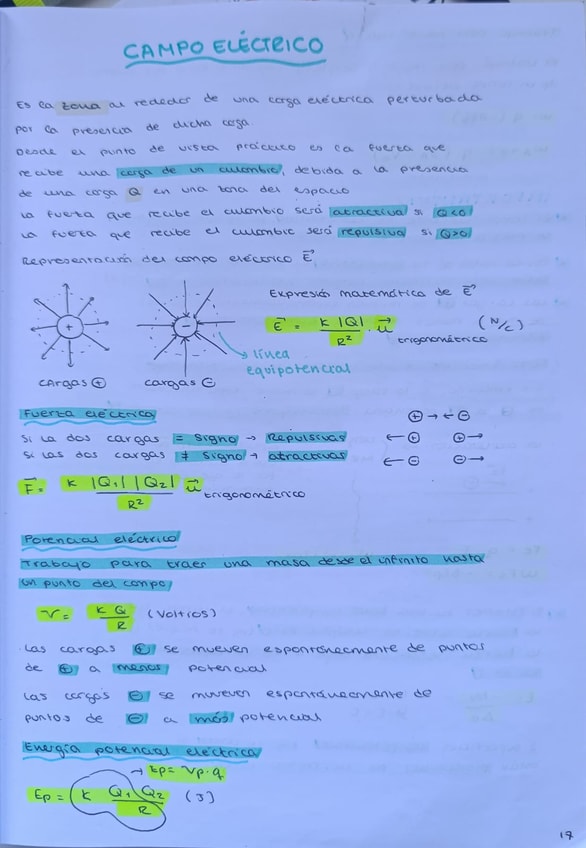 CAMPO ELÉCTRICO
Es la zona al rededor de una carga eléctrica perturbada
por la presencia de dicha carga
Desde el punto de vista práctico es la fuerza que
recibe una carga de un culombio, debida a la presencia
de una carga Q en una zona del espacio
La fuerza que recibe el culombio será atractiva si Q<0
La fuerza que recibe el culombio será repulsiva si Q>0
Representación del campo eléctrico E⃗
Expresión matemática de E⃗
E⃗ = K |Q| / R² · u⃗ trigonométrico (N/C)
línea
equipotencial
cargas ⊕ cargas ⊖
Fuerza eléctrica
⊕ → ← ⊖
Si la dos cargas = signo → Repulsivas ← ⊕ ⊕ →
Si las dos cargas ≠ signo → atractivas ← ⊖ ⊖ →
F⃗ = K |Q₁| |Q₂| / R² u⃗ trigonométrico
Potencial eléctrico
Trabajo para traer una masa desde el infinito hasta
un punto del campo
V = K Q / R (Voltios)
Las cargas ⊕ se mueven espontáneamente de puntos
de ⊕ a menos potencial
Las cargas ⊖ se mueven espontáneamente de
puntos de ⊖ a más potencial
Energía potencial eléctrica
→ Ep = Vp · q
Ep = K Q₁ Q₂ / R (J)